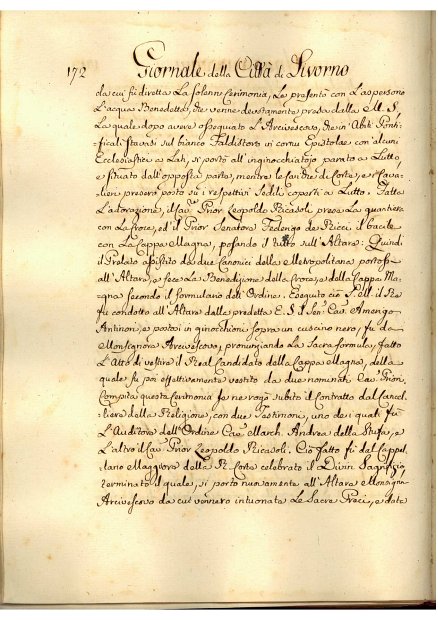 172 Giornale della Città di Livorno
da cui fù diretta La solenne Cerimonia, Le presentò con L'aspersorio
L'acqua Benedetta, che venne devotamente presa dalla M. S.
La quale dopo avere ossequiato L'Arcivescovo, che in Abiti Ponti-
ficali stavasi sul bianco Faldistorio in cornu Epistolae con alcuni
Ecclesiastici a Lati, si portò all'inginocchiatojo parato a Lutto,
e situato dall'opposta parte, mentre le Cariche di Corte, e i Cava-
lieri presero posto sù i respettivi Sedili coperti a Lutto. Fatta
L'adorazione, il Cav. Prior Leopoldo Ricasoli prese La quantiera
con La Croce, ed il Prior Senatore Federigo de Ricci il bacile
con La Cappa Magna, posando il tutto sull'Altare: Quindi
il Prelato assistito da due Canonici della Metropolitana portossi
all'Altare, e fece La Benedizione della Croce, e della Cappa Ma-
gna secondo il formulario dell'Ordine. Eseguito ciò S. M. il Re
fu condotto all'Altare dalla predetta E. S. il Sen. Cav. Amerigo
Antinori, e postosi in ginocchioni sopra un cuscino nero, fù da
Monsignore Arcivescovo, pronunziando La Sacra formula, fatto
L'Atto di vestire il Real Candidato della Cappa Magna, della
quale fù poi effettivamente vestito da due nominati Cav. Priori.
Compita questa Cerimonia se ne rogò subito il Contratto dal Cancel-
liere della Religione, con due Testimoni, uno dei quali fù
L'Auditore dell'Ordine Cav. March. Andrea della Stufa, e
L'altro il Cav. Prior Leopoldo Ricasoli. Ciò fatto fù dal Cappel-
lano Maggiore della R. Corte celebrato il Divin Sagrifizio,
terminato il quale, si portò nuovamente all'Altare Monsignor
Arcivescovo da cui vennero intuonate Le Sacre Preci, e date